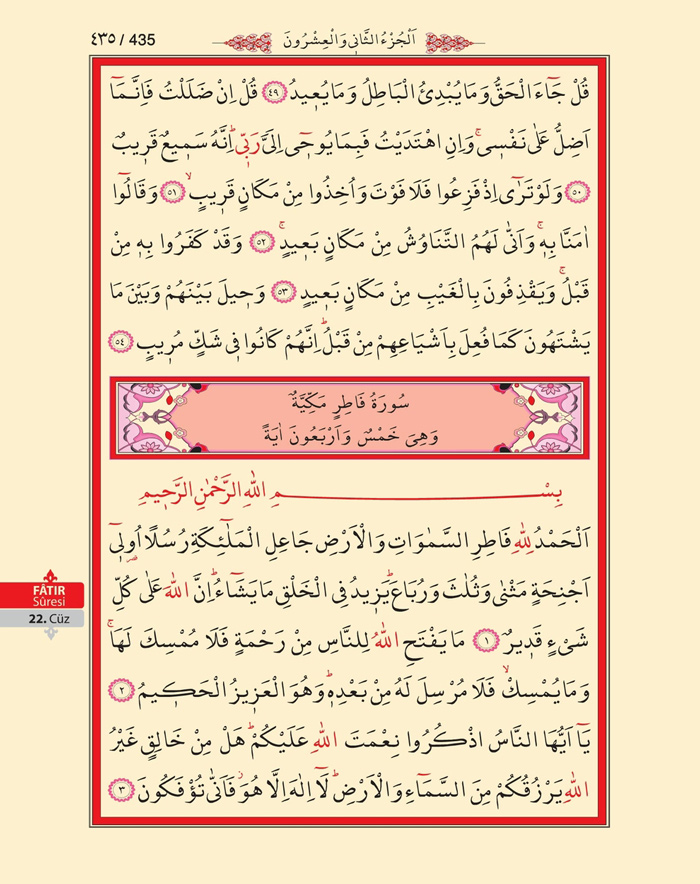 ٤٣٥ / 435
اَلْجُزْءُ الثَّانٖي وَالْعِشْرُونَ
قُلْ جَٓاءَ الْحَقُّ وَمَا يُبْدِئُ الْبَاطِلُ وَمَا يُعٖيدُ ﴿٤٩﴾ قُلْ اِنْ ضَلَلْتُ فَاِنَّمَٓا
اَضِلُّ عَلٰى نَفْسٖيۚ وَاِنِ اهْتَدَيْتُ فَبِمَا يُوحٖٓي اِلَيَّ رَبّٖيۜ اِنَّهُ سَمٖيعٌ قَرٖيبٌ
﴿٥٠﴾ وَلَوْ تَرٰٓى اِذْ فَزِعُوا فَلَا فَوْتَ وَاُخِذُوا مِنْ مَكَانٍ قَرٖيبٍۙ ﴿٥١﴾ وَقَالُٓوا
اٰمَنَّا بِهٖۚ وَاَنّٰى لَهُمُ التَّنَاوُشُ مِنْ مَكَانٍ بَعٖيدٍۚ ﴿٥٢﴾ وَقَدْ كَفَرُوا بِهٖ مِنْ
قَبْلُۚ وَيَقْذِفُونَ بِالْغَيْبِ مِنْ مَكَانٍ بَعٖيدٍ ﴿٥٣﴾ وَحٖيلَ بَيْنَهُمْ وَبَيْنَ مَا
يَشْتَهُونَ كَمَا فُعِلَ بِاَشْيَاعِهِمْ مِنْ قَبْلُۜ اِنَّهُمْ كَانُوا فٖي شَكٍّ مُرٖيبٍ ﴿٥٤﴾
سُورَةُ فَاطِرٍ مَكِّيَّةٌ
وَهِيَ خَمْسٌ وَاَرْبَعُونَ اٰيَةً
بِسْمِ اللّٰهِ الرَّحْمٰنِ الرَّحٖيمِ
اَلْحَمْدُ لِلّٰهِ فَاطِرِ السَّمٰوَاتِ وَالْاَرْضِ جَاعِلِ الْمَلٰٓئِكَةِ رُسُلًا اُولٖٓي
اَجْنِحَةٍ مَثْنٰى وَثُلٰثَ وَرُبَاعَۜ يَزٖيدُ فِي الْخَلْقِ مَا يَشَٓاءُۜ اِنَّ اللّٰهَ عَلٰى كُلِّ
شَيْءٍ قَدٖيرٌ ﴿١﴾ مَا يَفْتَحِ اللّٰهُ لِلنَّاسِ مِنْ رَحْمَةٍ فَلَا مُمْسِكَ لَهَاۚ
وَمَا يُمْسِكْۙ فَلَا مُرْسِلَ لَهُ مِنْ بَعْدِهٖۜ وَهُوَ الْعَزٖيزُ الْحَكٖيمُ ﴿٢﴾
يَٓا اَيُّهَا النَّاسُ اذْكُرُوا نِعْمَتَ اللّٰهِ عَلَيْكُمْۜ هَلْ مِنْ خَالِقٍ غَيْرُ
اللّٰهِ يَرْزُقُكُمْ مِنَ السَّمَٓاءِ وَالْاَرْضِۜ لَٓا اِلٰهَ اِلَّا هُوَۘ فَاَنّٰى تُؤْفَكُونَ ﴿٣﴾
FÂTIR
Sûresi
22. Cüz